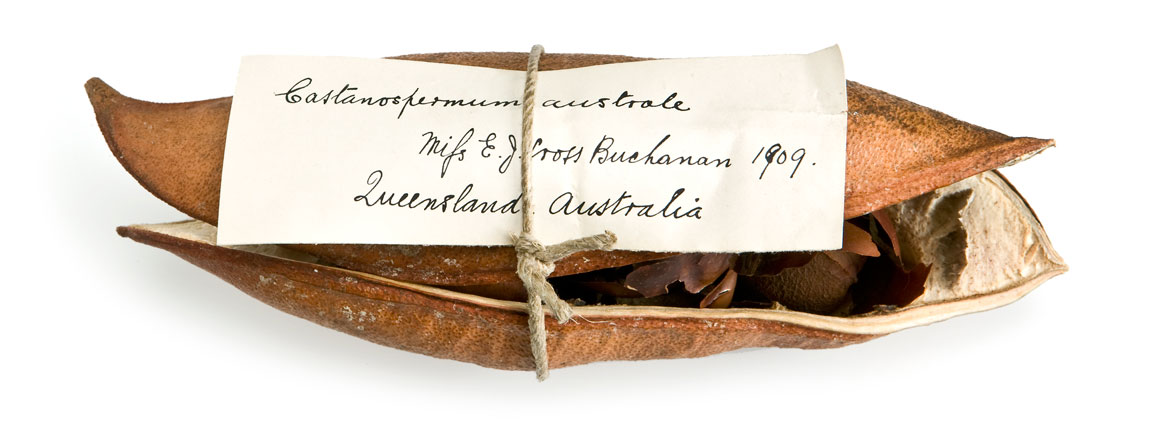 Castanospermum australe
Miss E. J. Cross Buchanan 1909.
Queensland. Australia